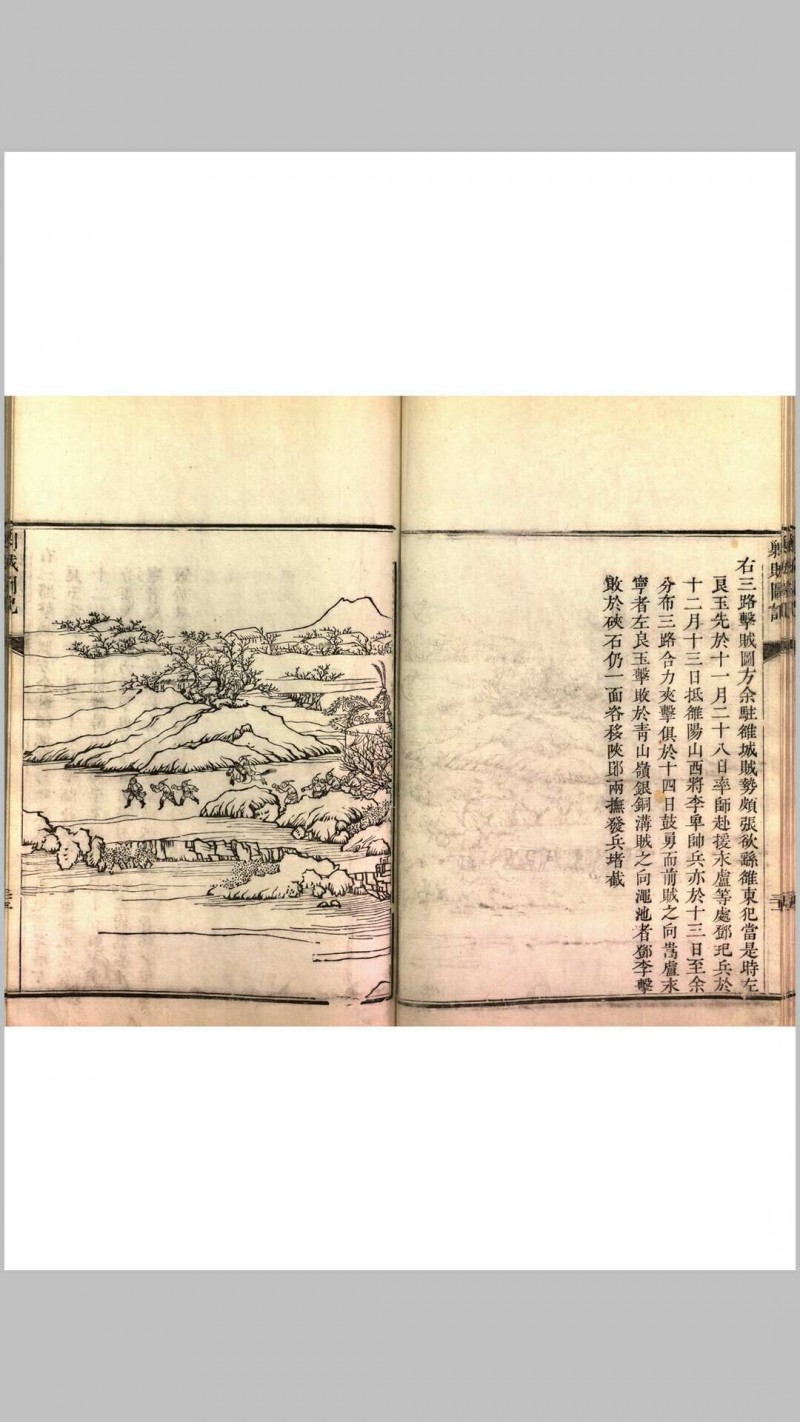 剿賊圖記
右三路擊賊圖方余駐雒城賊勢頗張欲繇雒東犯當是時左
良玉先於十一月二十八日率師赴援永盧等處鄧玘兵於
十二月十三日抵雒陽山西將李卑帥兵亦於十三日至余
分布三路合力夾擊俱於十四日鼓勇而前賊之向嵩盧永
寧者左良玉擊敗於靑山嶺銀銅溝賊之向澠池者鄧李擊
敗於硤石仍一面咨移陝鄖兩撫發兵堵截
剿賊圖記